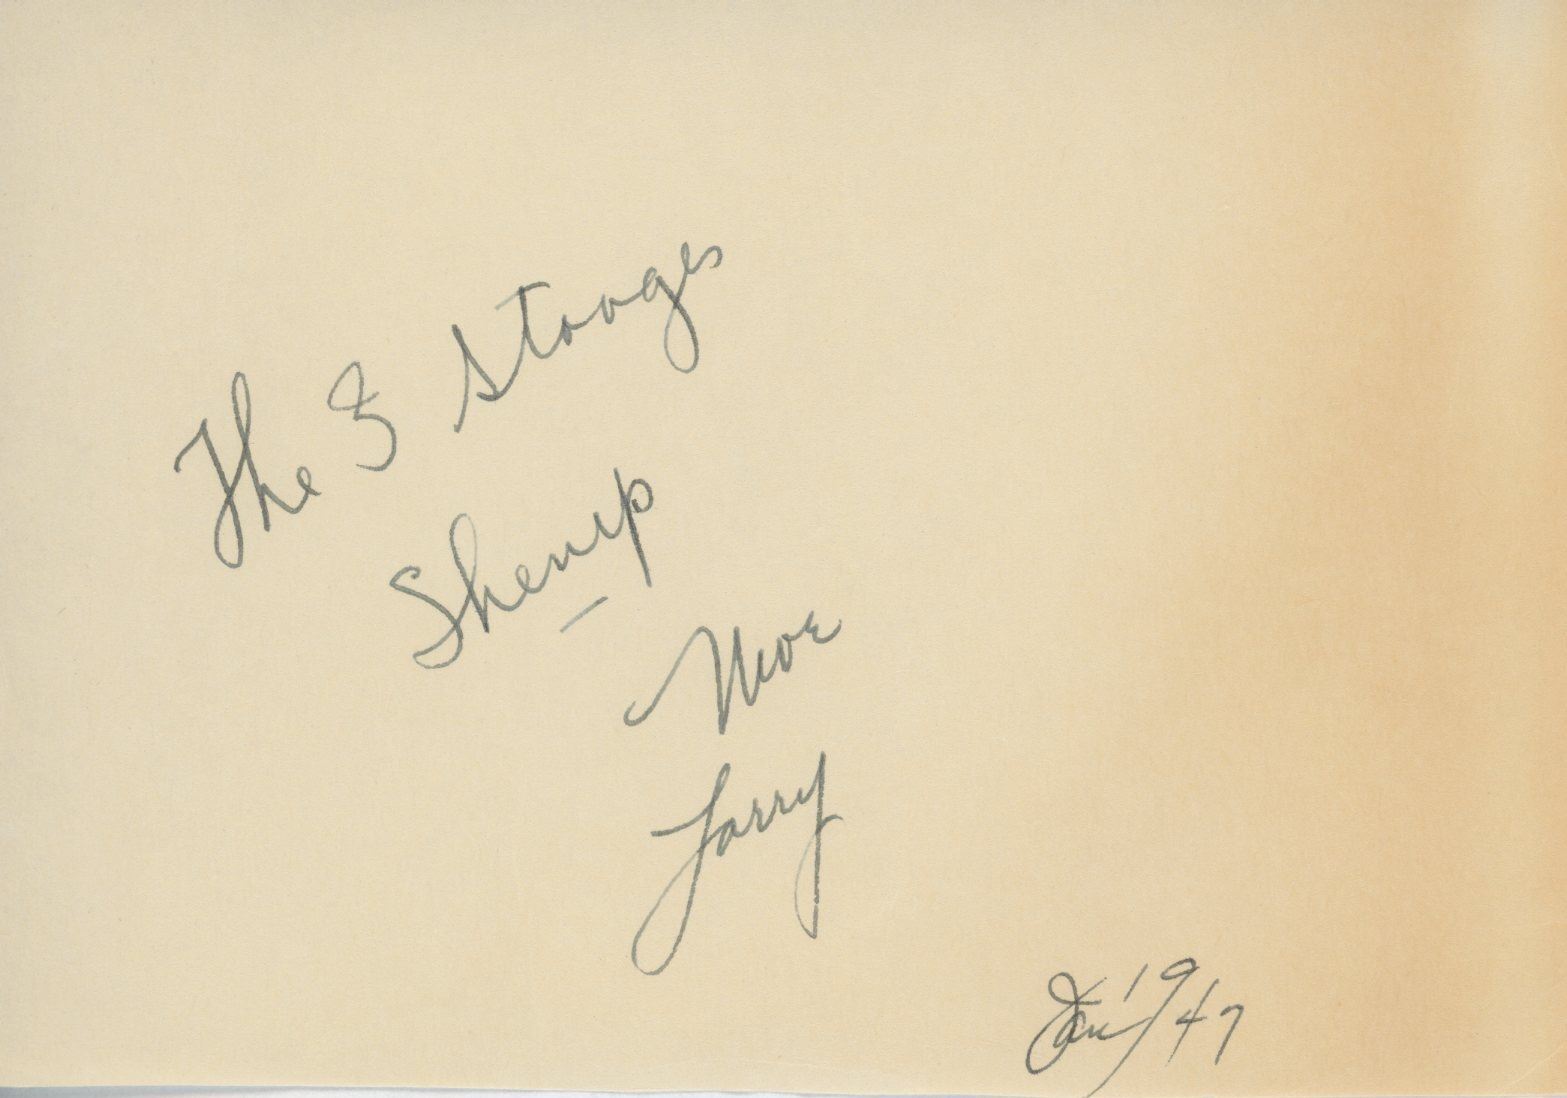 The 3 Stooges
Shemp
Moe
Larry
Jan 1947